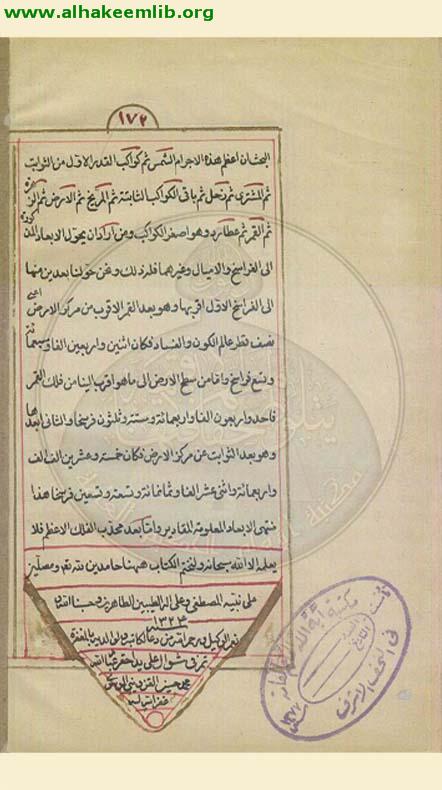 www.alhakeemlib.org
١٧٢
البحث ان اعظم هذه الاجرام الشمس ثم كواكب القدر الاول من الثوابت
ثم المشترى ثم زحل ثم باقى الكواكب الثابتة ثم المريخ ثم الارض ثم الزهرة
ثم القمر ثم عطارد وهو اصغر الكواكب ومن اراد ان يحول الابعاد المذكورة
الى الفراسخ والاميال وغيرهما فله ذلك ونحن حولنا بعدين منها
الى الفراسخ الاول اقربها وهو بعد القمر الاقرب من مركز الارض اعنى
نصف قطر عالم الكون والفساد فكان اثنين واربعين الفا وسبعمائة
وتسع فراسخ واما من سطح الارض الى ما هو اقرب الينا من فلك القمر
فاحد واربعون الفا واربعمائة وستة وثلثون فرسخا والثانى ابعدها
وهو بعد الثوابت عن مركز الارض فكان خمسة وعشرين الف الف
واربعمائة واثنى عشر الفا وثمانمائة وتسعة وتسعين فرسخا هذا
منتهى الابعاد المعلومة المقادير واما بعد محدب الفلك الاعظم فلا
يعلمه الا الله سبحانه ولنختم الكتاب ههنا حامدين لله تعالى ومصلين
على نبيه المصطفى وعلى آله الطيبين الطاهرين وحسبنا الله
١٣٢٣
نعم الوكيل ورحم الله من دعا لكاتبه ولوالديه بالمغفرة
تم فى شوال على يد احقر عباد الله
محمد حسين القزوينى
مكتبة آية الله
فى النجف الاشرف